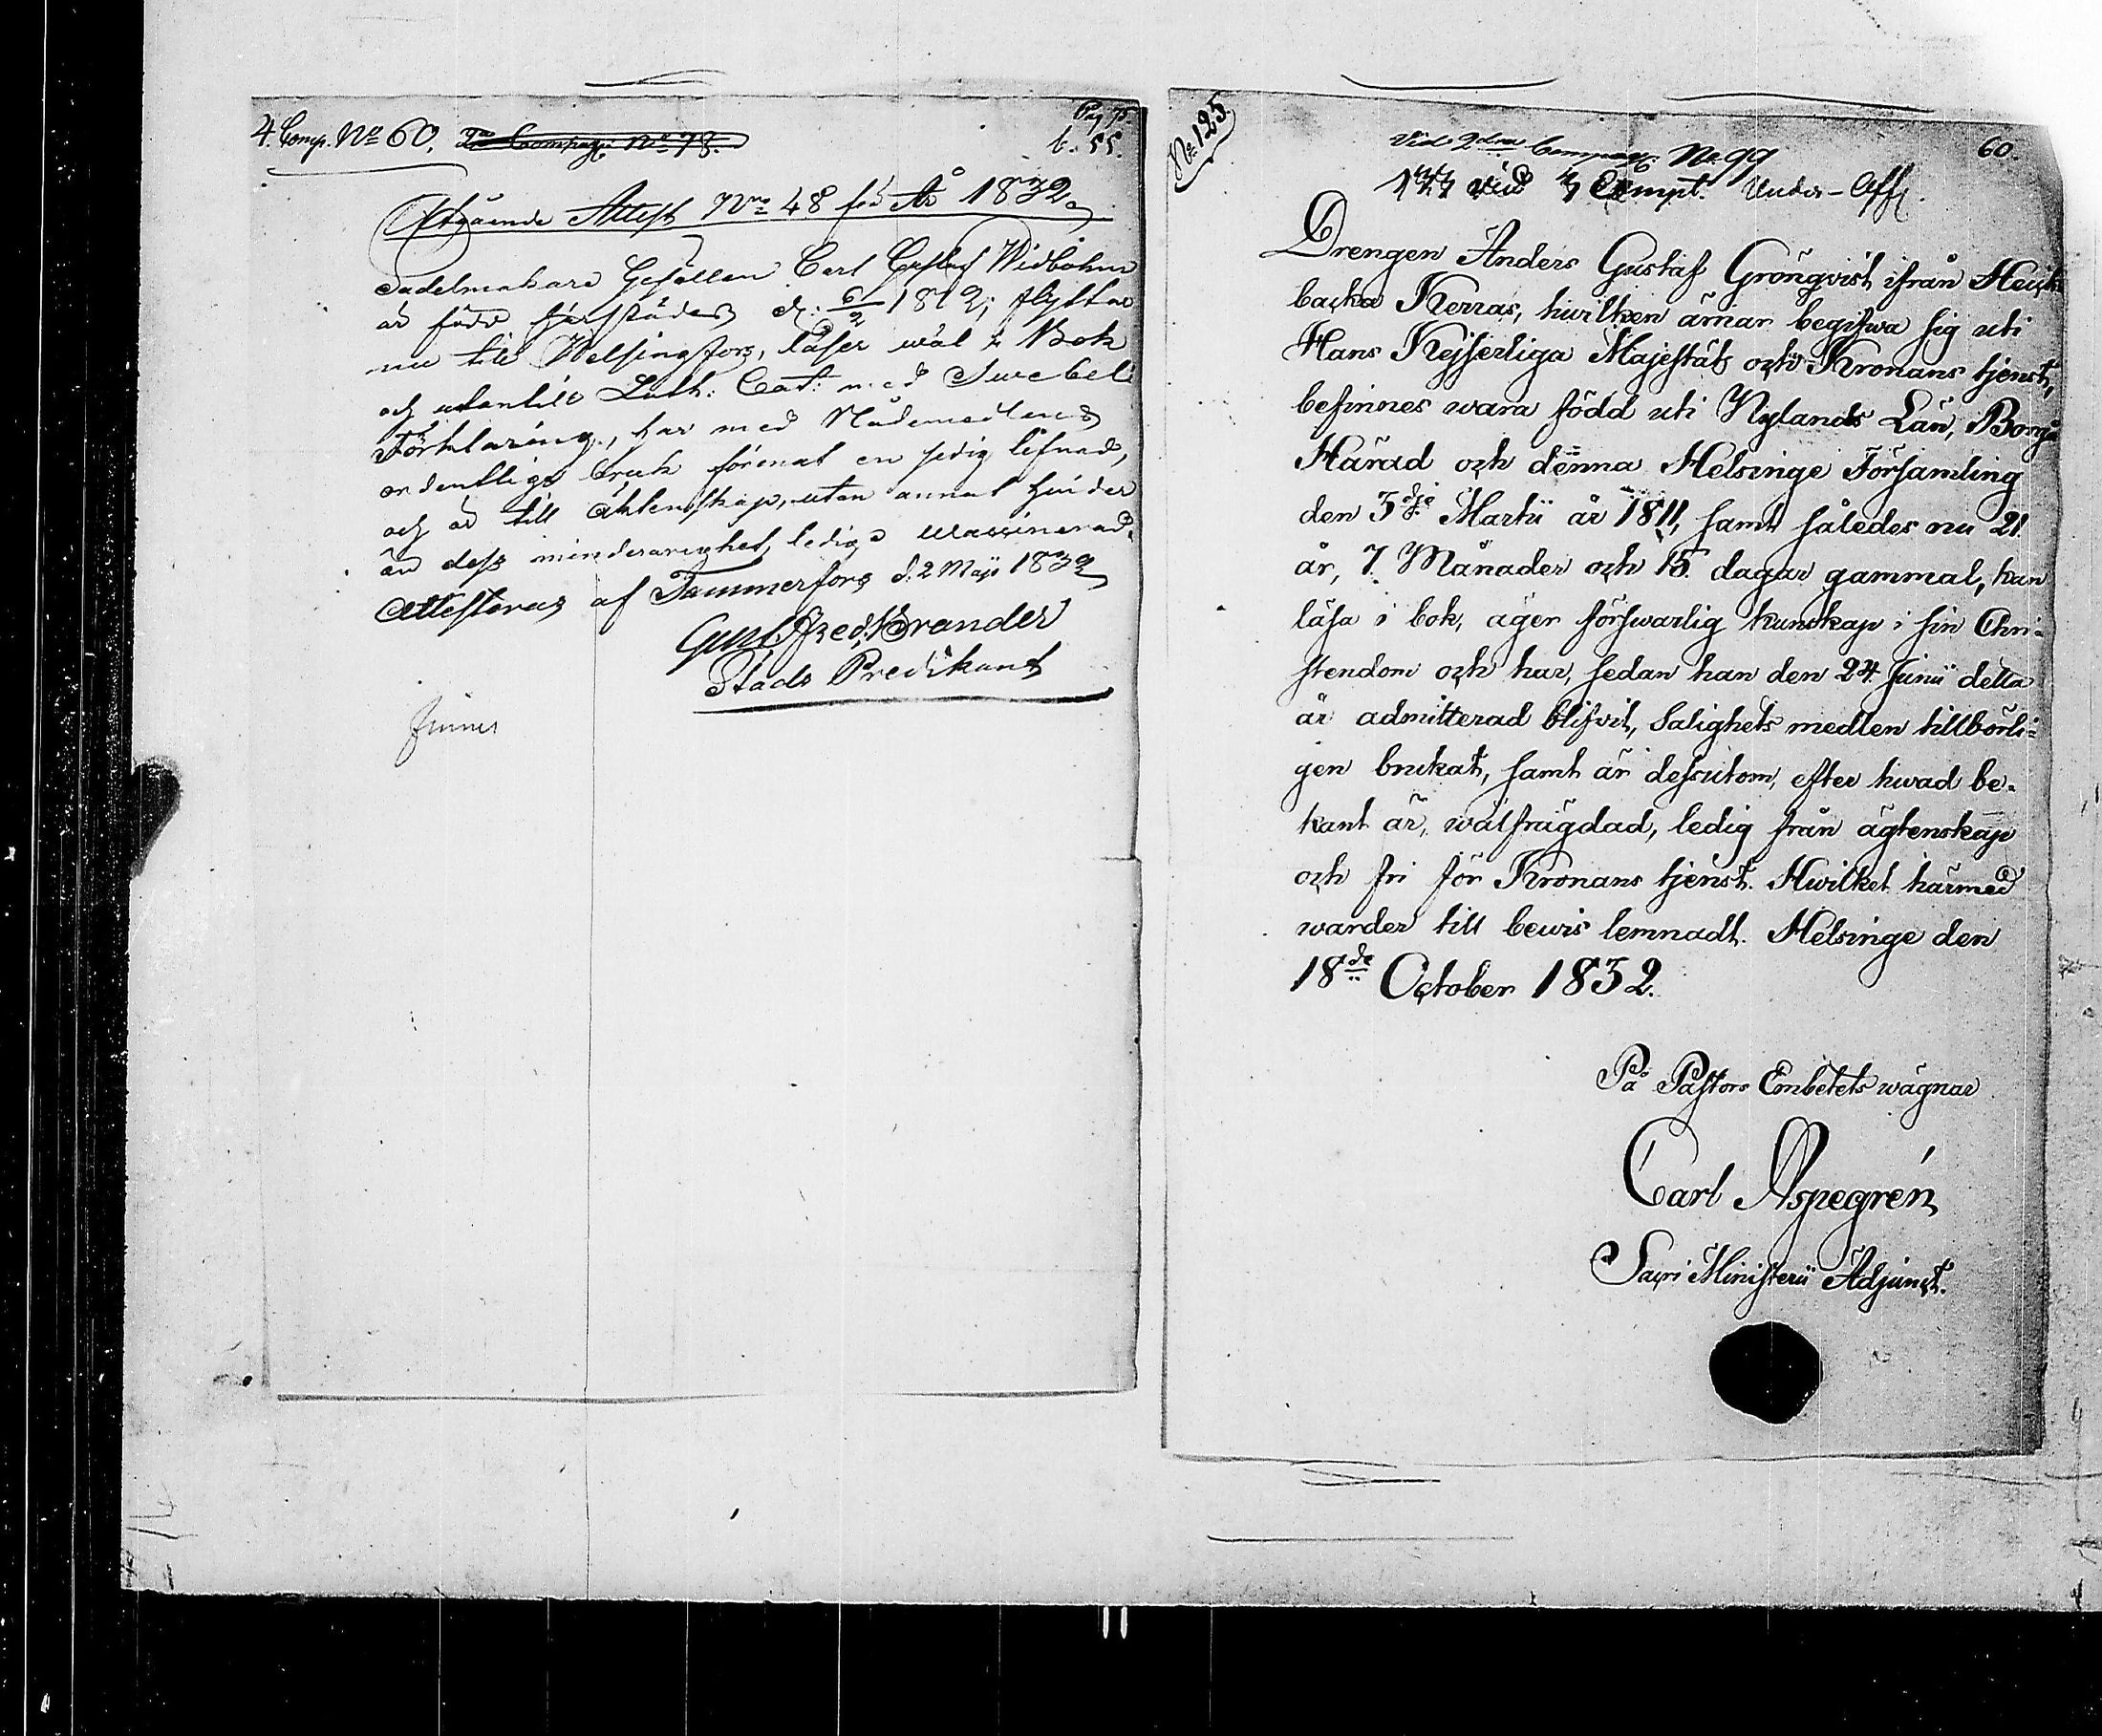 4. Comp. No 60. 2a Compag: No 78.
Pag 75
b. 55.
Utgående Attest Nro 48 för År 1832.
Sadelmakare Gesällen Carl Gustaf Widbohm
är född härstädes d: 6/2 1812, flyttar
nu till Helsingfors, läser wäl i Bok
och utantill Luth: Cat: med Swebeli
Förklaring, har med Nådemedlens
ordentliga bruk förenat en sedig lefnad,
och är till äktenskap, utan annat hinder
än dess minderårighet, ledig o waccinerad,
Attesteras af Tammerfors d. 2 Maji 1832
Gust. Fred. Brander
Stads Predikant
finnes
No 125.
60.
Vid 2dra Compag: No 99
177 vid 4 Compt. Under-Aff.
Drengen Anders Gustaf Grönqvist ifrån Heick
backa Kerras, hwilken ärnar begifwa sig uti
Hans Kejserliga Majestäts och Kronans tjenst,
befinnes wara född uti Nylands Län, Borgå
Härad och denna Helsinge Församling
den 3dje Martii år 1811, samt således nu 21
år, 7. Månader och 15. dagar gammal, kan
läsa i bok, äger försvarlig kunskap i sin Chri-
stendom och har, sedan han den 24. Junii detta
år admitterad blifvit, Salighets medlen tillbörli-
gen brukat, samt är dessutom, efter hwad be-
kant är, wälfrägdad, ledig från ägtenskap
och fri för Kronans tjenst. Hwilket härmed
warder till bewis lemnadt. Helsinge den
18de October 1832.
På Pastors Embetets wägnar
Carl Aspegrén
Sacri Ministerii Adjunct.